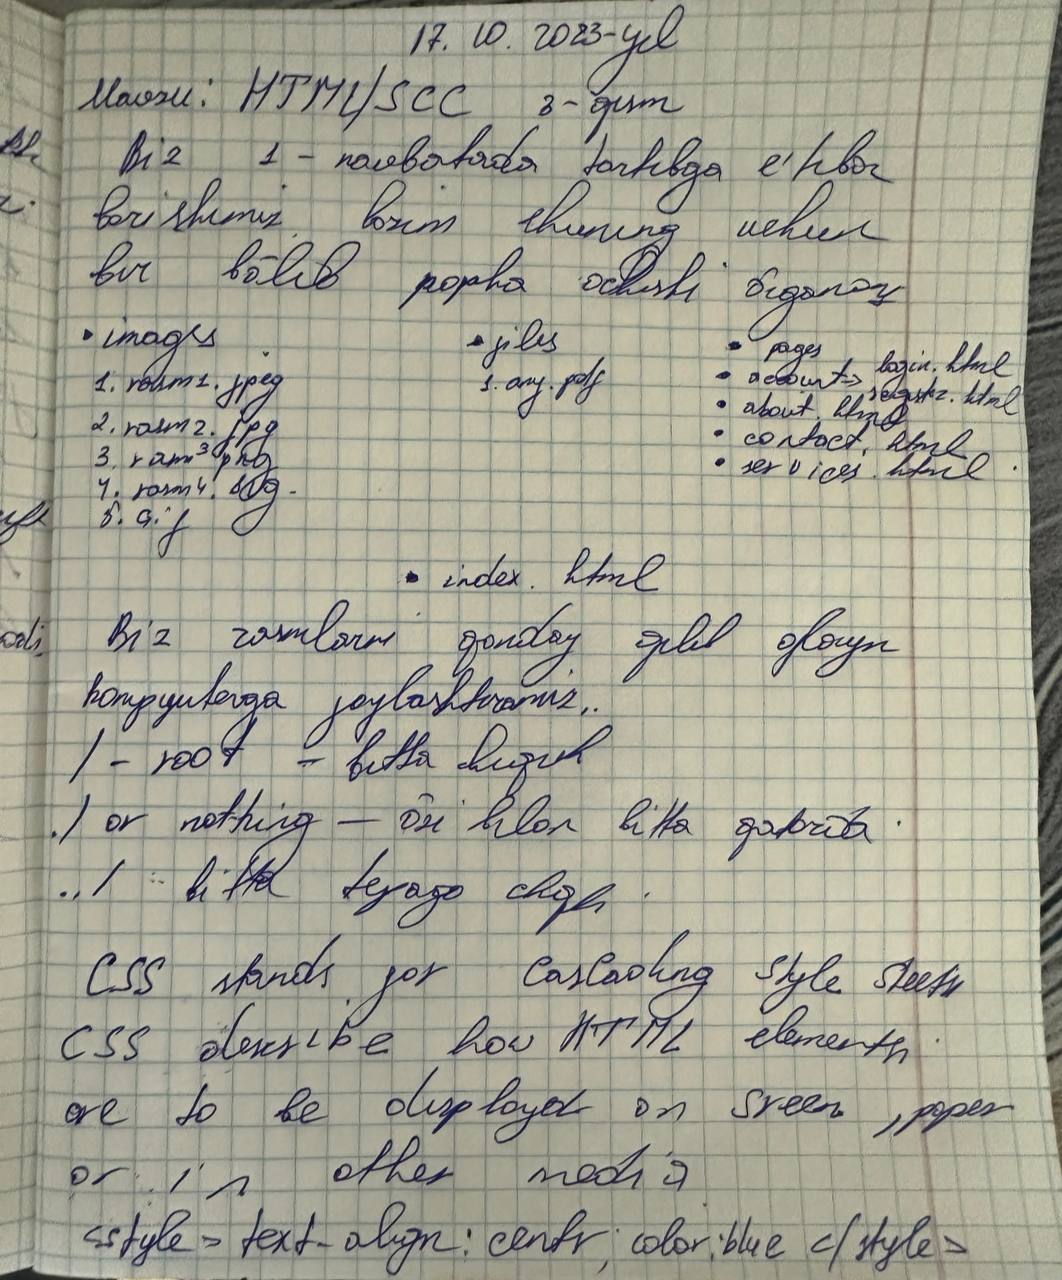 17. 10. 2023-yil
Mavzu: HTML/SCC 3-qism
Biz 1 - navbatada tartibga e'tibor
borishimiz lozim shuning uchun
bir bōlib papka ochishi
• images
1. rasm1. jpeg
2. rasm2. jpg
3. ram3 png
4. rasm4. svg.
5. G.if
• files
1. any. pdf
• pages
• account → login. html
registr. html
• about. html
• contact. html
• services. html
• index. html
Biz rasmlarni qanday qilib
kompyuterga joylashtiramiz..
/ - root - bitta
./ or nothing — ōzi bilan bitta qatorda.
../ bitta tepaga
CSS stands for Cascading Style Sheets
CSS describe how HTML elements
are to be displayed on sreen, paper
or in other media
<style> text-align: centr; color: blue </style>